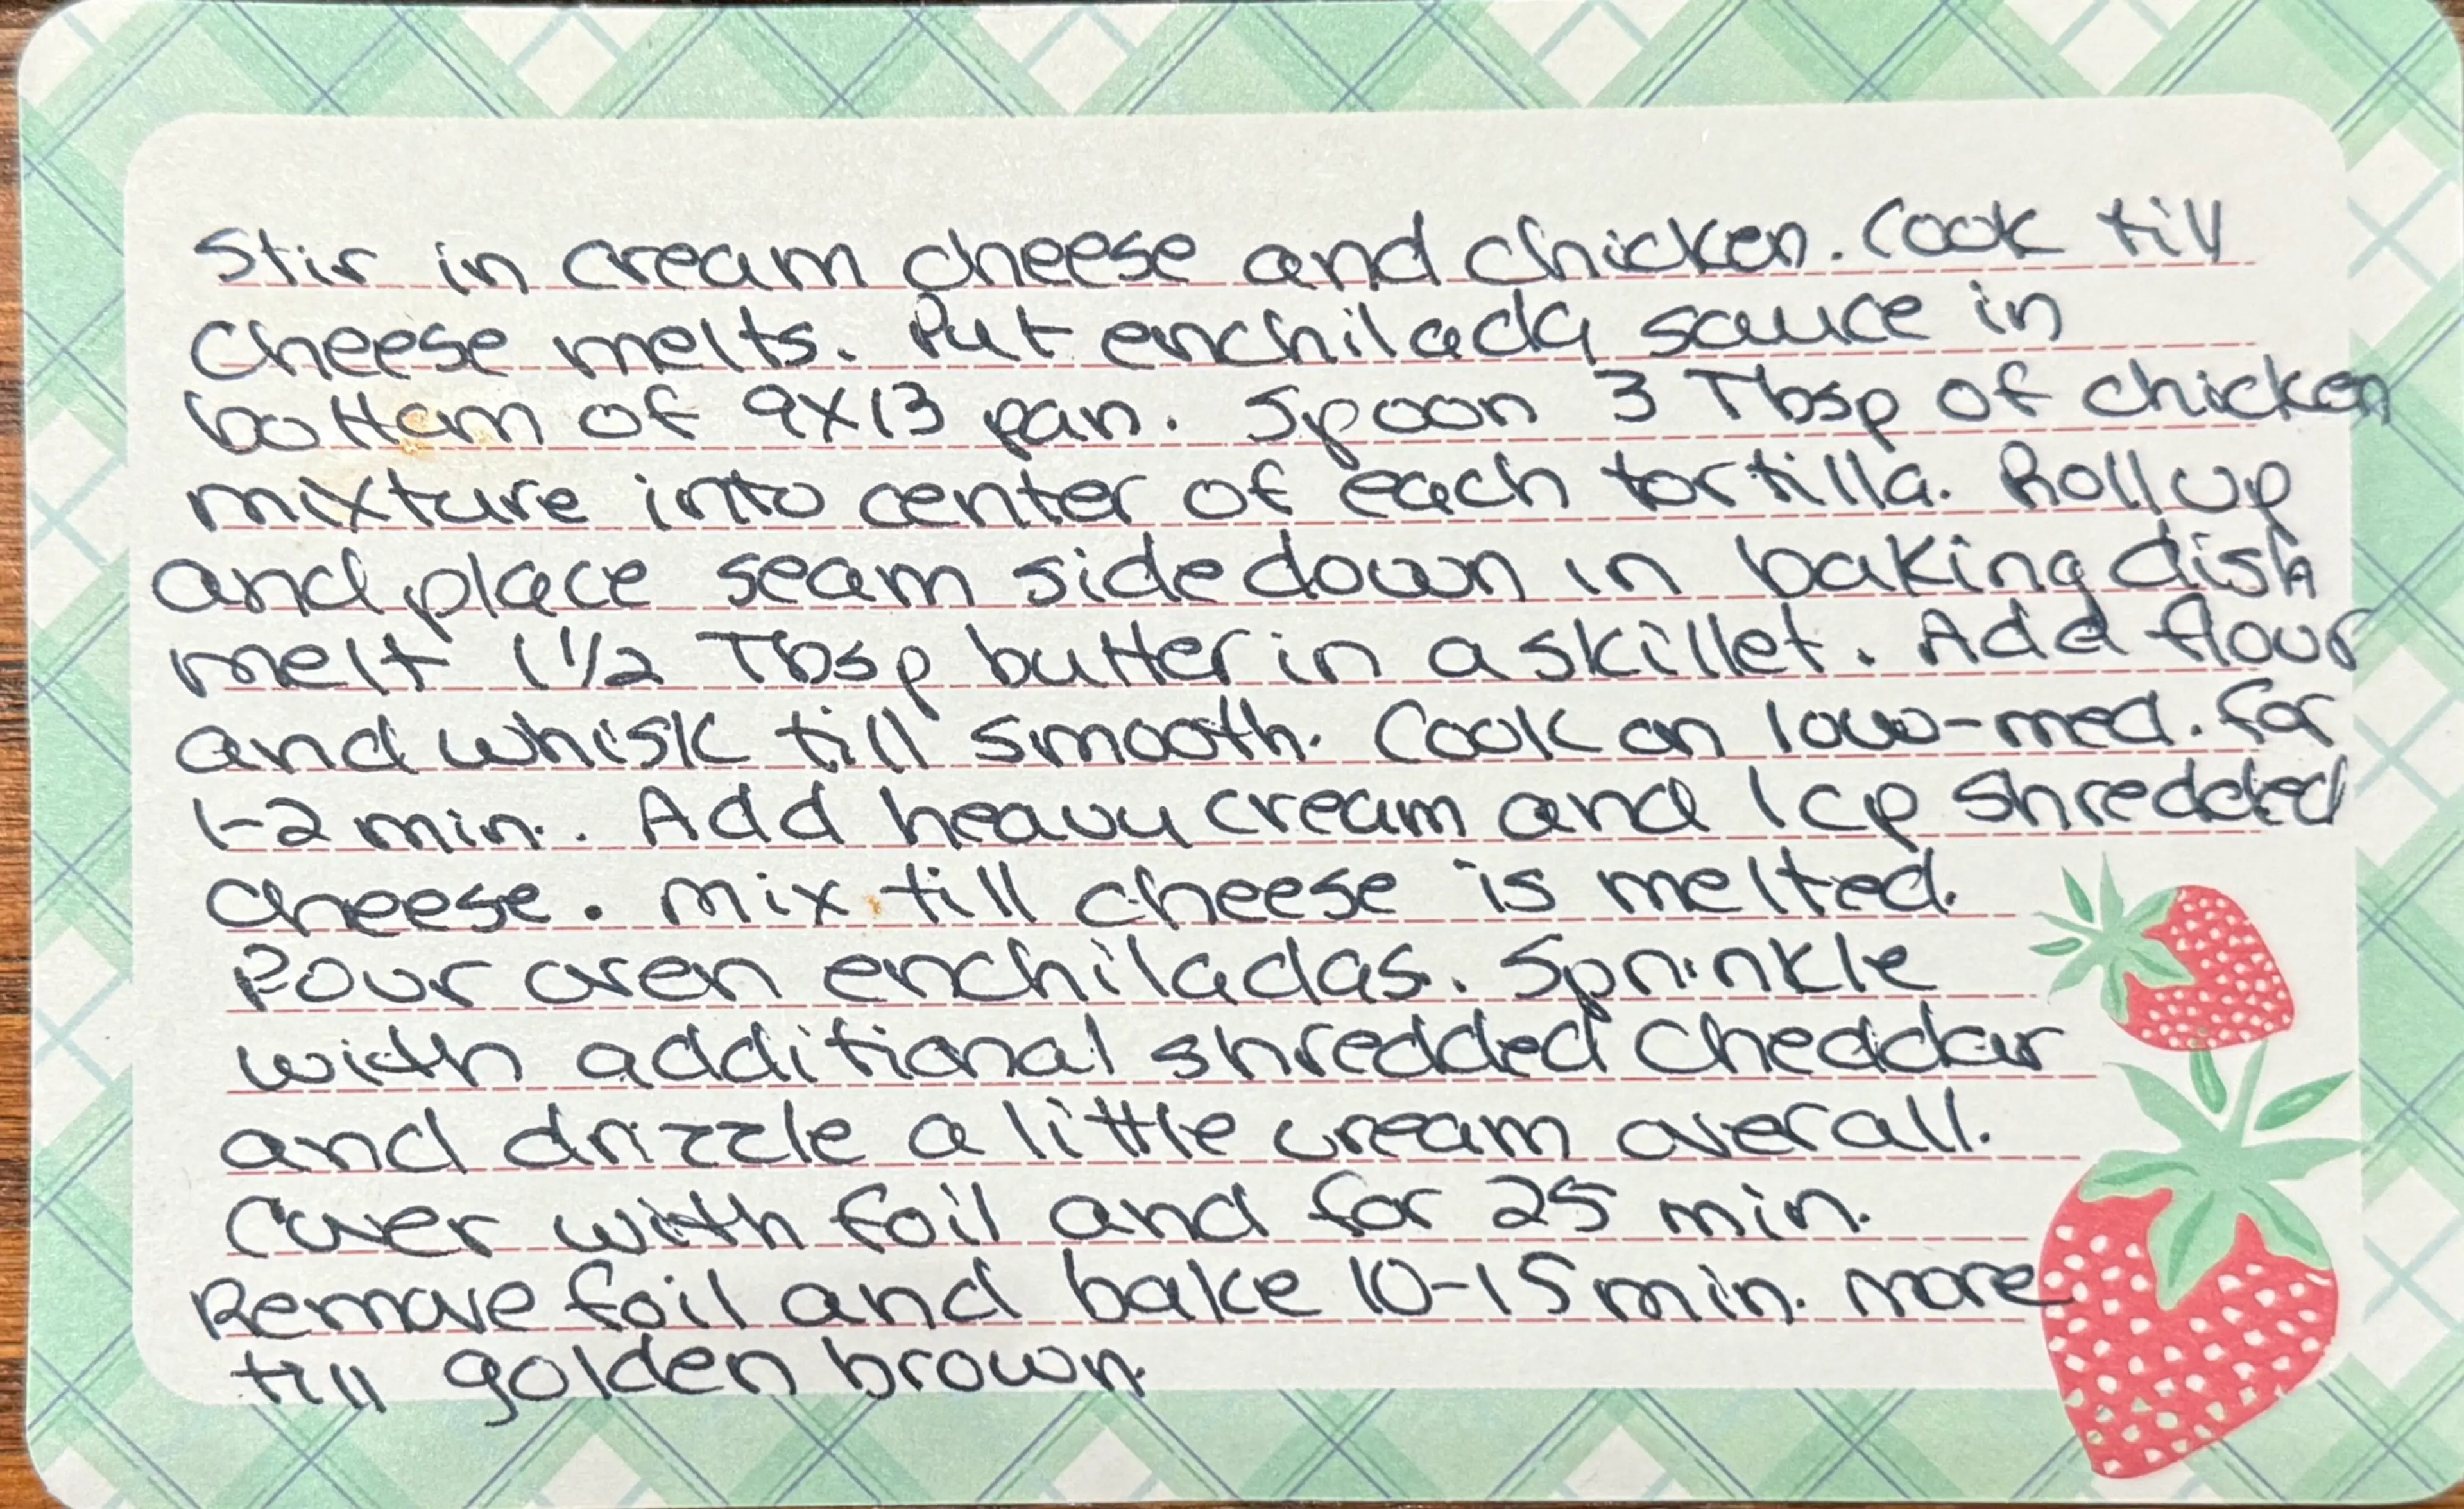 Stir in cream cheese and chicken. Cook till
cheese melts. Put enchilada sauce in
bottom of 9x13 pan. Spoon 3 Tbsp of chicken
mixture into center of each tortilla. Roll up
and place seam side down in baking dish
melt 1 1/2 Tbsp butter in a skillet. Add flour
and whisk till smooth. Cook on low-med. for
1-2 min.. Add heavy cream and 1 cp shredded
cheese. Mix till cheese is melted.
Pour oven enchiladas. Sprinkle
with additional shredded cheddar
and drizzle a little cream overall.
Cover with foil and for 25 min.
Remove foil and bake 10-15 min. more
till golden brown.